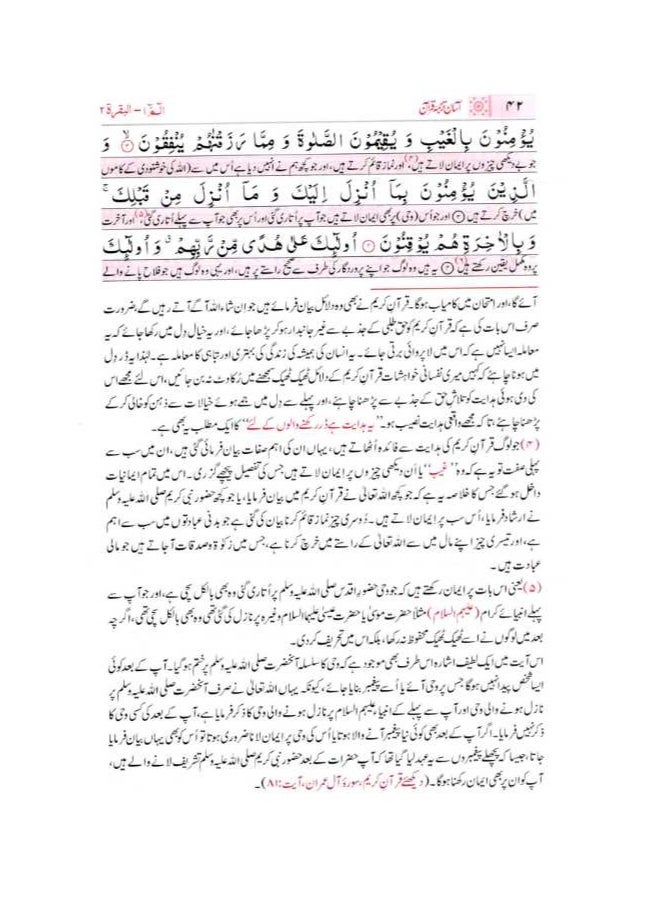 ۴۲ آسان ترجمۂ قرآن الٓمّٓ ۱ - البقرۃ ۲
يُؤْمِنُوْنَ بِالْغَيْبِ وَ يُقِيْمُوْنَ الصَّلٰوةَ وَ مِمَّا رَزَقْنٰهُمْ يُنْفِقُوْنَ ۙ﴿۳﴾ وَ
جو بے دیکھی چیزوں پر ایمان لاتے ہیں (۴) اور نماز قائم کرتے ہیں، اور جو کچھ ہم نے انہیں دیا ہے اُس میں سے (اللہ کی خوشنودی کے کاموں
الَّذِيْنَ يُؤْمِنُوْنَ بِمَآ اُنْزِلَ اِلَيْكَ وَ مَآ اُنْزِلَ مِنْ قَبْلِكَ ۚ
میں) خرچ کرتے ہیں ﴿۳﴾ اور جو اُس (وحی) پر بھی ایمان لاتے ہیں جو آپ پر اُتاری گئی اور اُس پر بھی جو آپ سے پہلے اُتاری گئی (۵) اور آخرت
وَ بِالْاٰخِرَةِ هُمْ يُوْقِنُوْنَ ﴿۴﴾ اُولٰٓئِكَ عَلٰى هُدًى مِّنْ رَّبِّهِمْ ۗ وَ اُولٰٓئِكَ
پر وہ مکمل یقین رکھتے ہیں (۶) ﴿۴﴾ یہ ہیں وہ لوگ جو اپنے پروردگار کی طرف سے صحیح راستے پر ہیں، اور یہی وہ لوگ ہیں جو فلاح پانے والے
آئے گا، اور امتحان میں کامیاب ہوگا۔ قرآنِ کریم نے بھی وہ دلائل بیان فرمائے ہیں جو اِن شاء اللہ آگے آتے رہیں گے، ضرورت
صرف اس بات کی ہے کہ قرآنِ کریم کو حق طلبی کے جذبے سے غیر جانبدار ہوکر پڑھا جائے، اور یہ خیال دِل میں رکھا جائے کہ یہ
معاملہ ایسا نہیں ہے کہ اس میں لاپروائی برتی جائے۔ یہ انسان کی ہمیشہ کی زندگی کی بہتری اور تباہی کا معاملہ ہے۔ لہٰذا یہ ڈر دِل
میں ہونا چاہئے کہ کہیں میری نفسانی خواہشات قرآنِ کریم کے دلائل ٹھیک ٹھیک سمجھنے میں رُکاوٹ نہ بن جائیں، اس لئے مجھے اس
کی دی ہوئی ہدایت کو تلاشِ حق کے جذبے سے پڑھنا چاہئے، اور پہلے سے دِل میں جمے ہوئے خیالات سے ذہن کو خالی کرکے
پڑھنا چاہئے، تاکہ مجھے واقعی ہدایت نصیب ہو۔ ’’یہ ہدایت ہے ڈر رکھنے والوں کے لئے‘‘ کا ایک مطلب یہ بھی ہے۔
(۴) جو لوگ قرآنِ کریم کی ہدایت سے فائدہ اُٹھاتے ہیں، یہاں اُن کی اہم صفات بیان فرمائی گئی ہیں، ان میں سب سے
پہلی صفت تو یہ ہے کہ وہ ’’غیب‘‘ یا اَن دیکھی چیزوں پر اِیمان لاتے ہیں جس کی تفصیل پیچھے گزری۔ اس میں تمام ایمانیات
داخل ہوگئے جس کا خلاصہ یہ ہے کہ جو کچھ اللہ تعالیٰ نے قرآنِ کریم میں بیان فرمایا، یا جو کچھ حضور نبی کریم صلی اللہ علیہ وسلم
نے ارشاد فرمایا، اُس سب پر اِیمان لاتے ہیں۔ دُوسری چیز نماز قائم کرنا بیان کی گئی ہے جو بدنی عبادتوں میں سب سے اہم
ہے، اور تیسری چیز اپنے مال میں سے اللہ تعالیٰ کے راستے میں خرچ کرنا ہے، جس میں زکوٰۃ و صدقات آجاتے ہیں جو مالی
عبادت ہیں۔
(۵) یعنی اس بات پر ایمان رکھتے ہیں کہ جو وحی حضورِ اقدس صلی اللہ علیہ وسلم پر اُتاری گئی وہ بھی بالکل سچی ہے، اور جو آپ سے
پہلے انبیائے کرام (علیہم السلام) مثلاً حضرت موسیٰ یا حضرت عیسیٰ علیہما السلام وغیرہ پر نازل کی گئی تھی وہ بھی بالکل سچی تھی، اگرچہ
بعد میں لوگوں نے اسے ٹھیک ٹھیک محفوظ نہ رکھا، بلکہ اس میں تحریف کردی۔
اس آیت میں ایک لطیف اشارہ اس طرف بھی موجود ہے کہ وحی کا سلسلہ آنحضرت صلی اللہ علیہ وسلم پر ختم ہوگیا۔ آپ کے بعد کوئی
ایسا شخص پیدا نہیں ہوگا جس پر وحی آئے یا اُسے پیغمبر بنایا جائے، کیونکہ یہاں اللہ تعالیٰ نے صرف آنحضرت صلی اللہ علیہ وسلم پر
نازل ہونے والی وحی اور آپ سے پہلے کے انبیاء علیہم السلام پر نازل ہونے والی وحی کا ذکر فرمایا ہے، آپ کے بعد کی کسی وحی کا
ذکر نہیں فرمایا۔ اگر آپ کے بعد بھی کوئی نیا پیغمبر آنے والا ہوتا یا اُس کی وحی پر ایمان لانا ضروری ہوتا تو اُس کو بھی یہاں بیان فرمایا
جاتا، جیسا کہ پچھلے پیغمبروں سے یہ عہد لیا گیا تھا کہ آپ حضرات کے بعد حضور نبی کریم صلی اللہ علیہ وسلم تشریف لانے والے ہیں،
آپ کو ان پر بھی ایمان رکھنا ہوگا۔ (دیکھئے قرآنِ کریم، سورۂ آلِ عمران، آیت:۸۱)۔